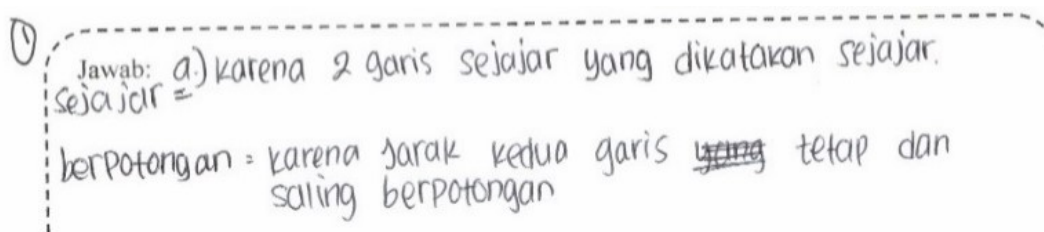 ①
Jawab: a.) karena 2 garis sejajar yang dikatakan sejajar.
sejajar =
berpotongan = karena jarak kedua garis ~~yang~~ tetap dan
saling berpotongan